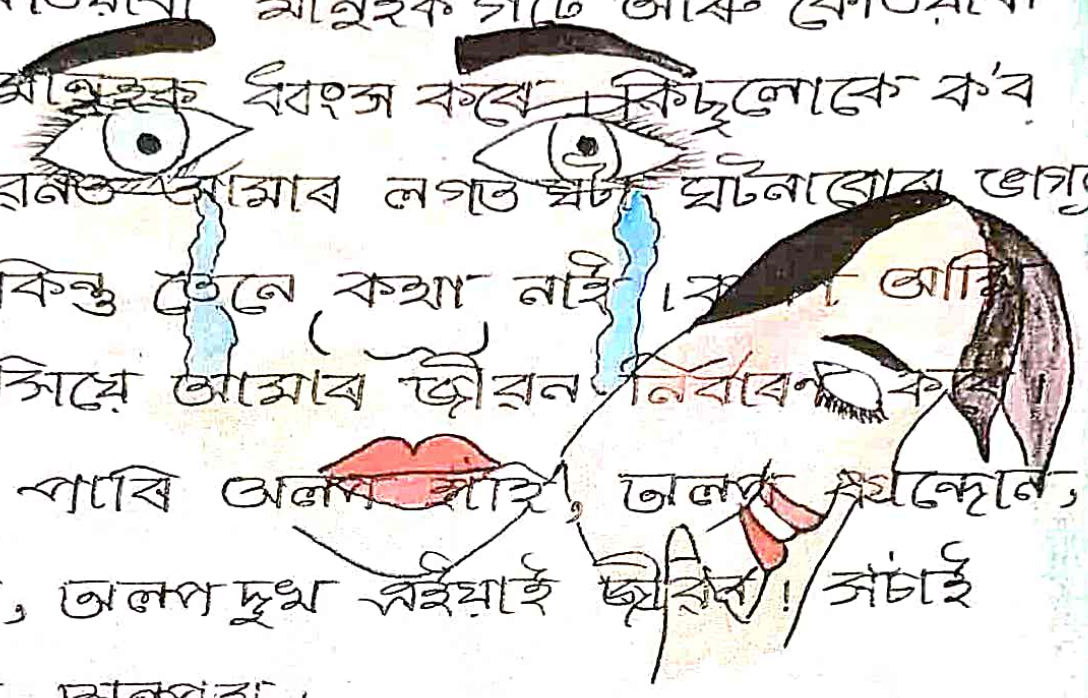 মানুহক গঢ়ে আৰু কেতিয়াবা
মানুহক ধ্বংস কৰে । কিছুলোকে ক'ব
আমাৰ লগত ঘটা ঘটনাবোৰ ভাগ্য
কিন্তু তেনে কথা নাই । আমি
সিয়ে আমাৰ জীৱন নিৰ্বাৰণ কৰে ।
পাৰি অলপ হাঁহি, অলপ ক্ৰন্দোন,
, অলপ দুখ এইয়াই জীৱন ! সচাই